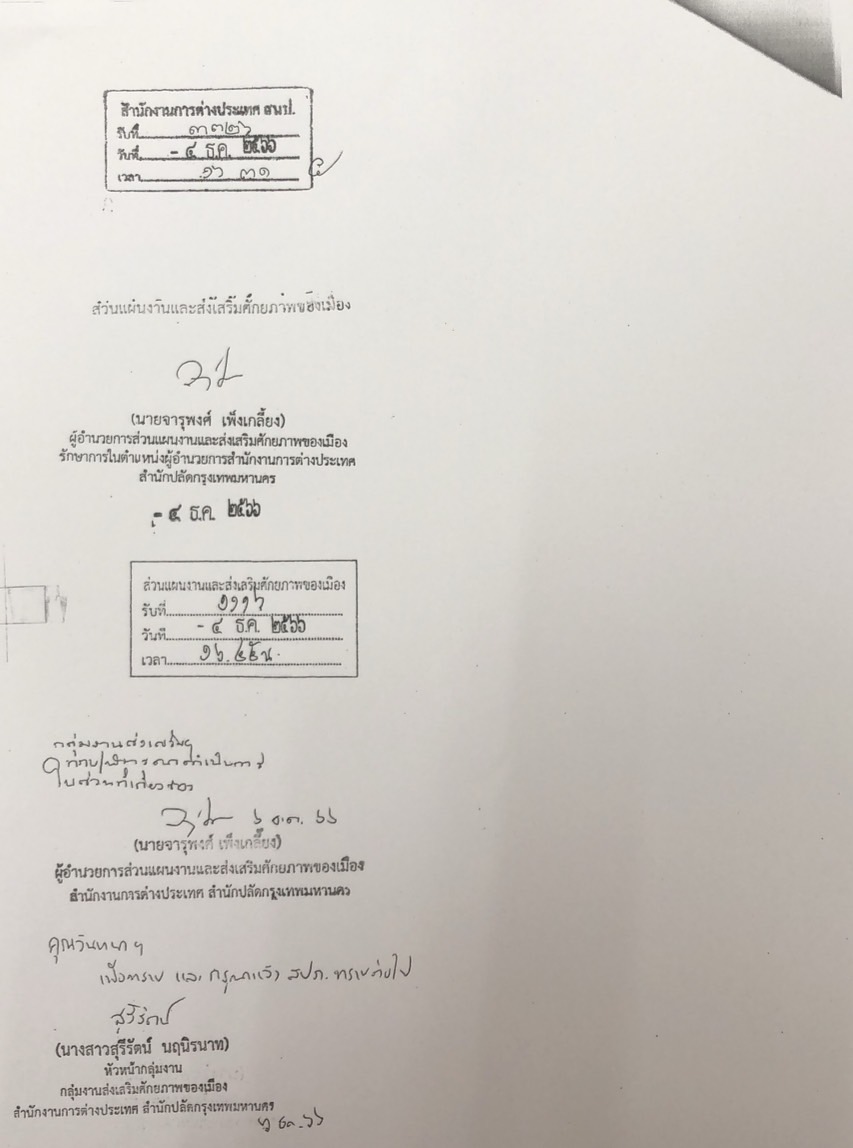 สำนักงานการต่างประเทศ สนป.
รับที่ ๓๓๒๖
วันที่ - ๔ ธ.ค. ๒๕๖๖
เวลา ๑๖ ๓๑
ส่วนแผนงานและส่งเสริมศักยภาพของเมือง
(นายจารุพงศ์ เพ็งเกลี้ยง)
ผู้อำนวยการส่วนแผนงานและส่งเสริมศักยภาพของเมือง
รักษาการในตำแหน่งผู้อำนวยการสำนักงานการต่างประเทศ
สำนักปลัดกรุงเทพมหานคร
- ๔ ธ.ค. ๒๕๖๖
ส่วนแผนงานและส่งเสริมศักยภาพของเมือง
รับที่
วันที่ - ๔ ธ.ค. ๒๕๖๖
เวลา
กลุ่มงานส่งเสริมฯ
ดำเนินการ
ในส่วนที่เกี่ยวข้อง
๖ ธ.ค. ๖๖
(นายจารุพงศ์ เพ็งเกลี้ยง)
ผู้อำนวยการส่วนแผนงานและส่งเสริมศักยภาพของเมือง
สำนักงานการต่างประเทศ สำนักปลัดกรุงเทพมหานคร
คุณวันทนา ฯ
เพื่อทราบ และ กรุณาแจ้ง สปภ. ทราบต่อไป
สุรีรัตน์
(นางสาวสุรีรัตน์ นฤนิรนาท)
หัวหน้ากลุ่มงาน
กลุ่มงานส่งเสริมศักยภาพของเมือง
สำนักงานการต่างประเทศ สำนักปลัดกรุงเทพมหานคร
ธค. ๖๖